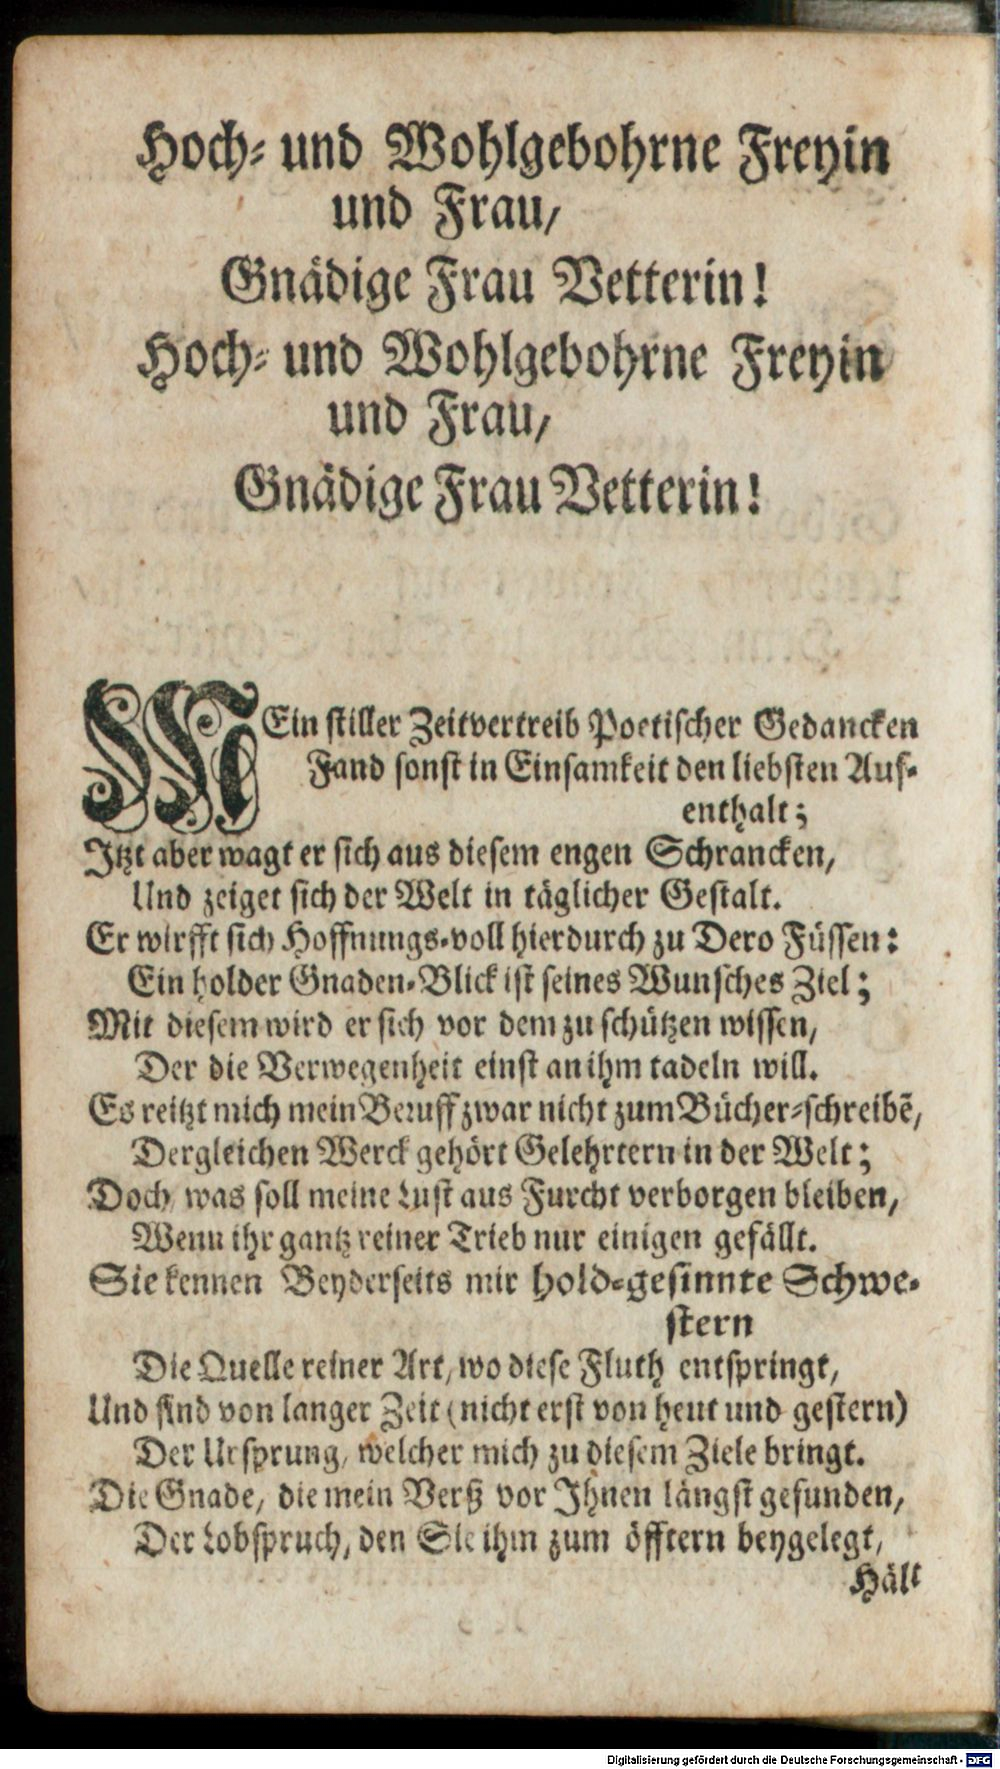 Hoch- und Wohlgebohrne Freyin
und Frau,
Gnädige Frau Vetterin!
Hoch- und Wohlgebohrne Freyin
und Frau,
Gnädige Frau Vetterin!
MEin stiller Zeitvertreib Poetischer Gedancken
Fand sonst in Einsamkeit den liebsten Auf-
enthalt;
Itzt aber wagt er sich aus diesem engen Schrancken,
Und zeiget sich der Welt in täglicher Gestalt.
Er wirfft sich Hoffnungs-voll hierdurch zu Dero Füssen:
Ein holder Gnaden-Blick ist seines Wunsches Ziel;
Mit diesem wird er sich vor dem zu schützen wissen,
Der die Verwegenheit einst an ihm tadeln will.
Es reitzt mich mein Beruff zwar nicht zum Bücher-schreibē,
Dergleichen Werck gehört Gelehrtern in der Welt;
Doch was soll meine Lust aus Furcht verborgen bleiben,
Wenn ihr gantz reiner Trieb nur einigen gefällt.
Sie kennen Beyderseits mir hold-gesinnte Schwe-
stern
Die Quelle reiner Art, wo diese Fluth entspringt,
Und sind von langer Zeit (nicht erst von heut und gestern)
Der Ursprung, welcher mich zu diesem Ziele bringt.
Die Gnade, die mein Verß vor Ihnen längst gefunden,
Der Lobspruch, den Sie ihm zum öfftern beygelegt,
Hält
Digitalisierung gefördert durch die Deutsche Forschungsgemeinschaft - DFG